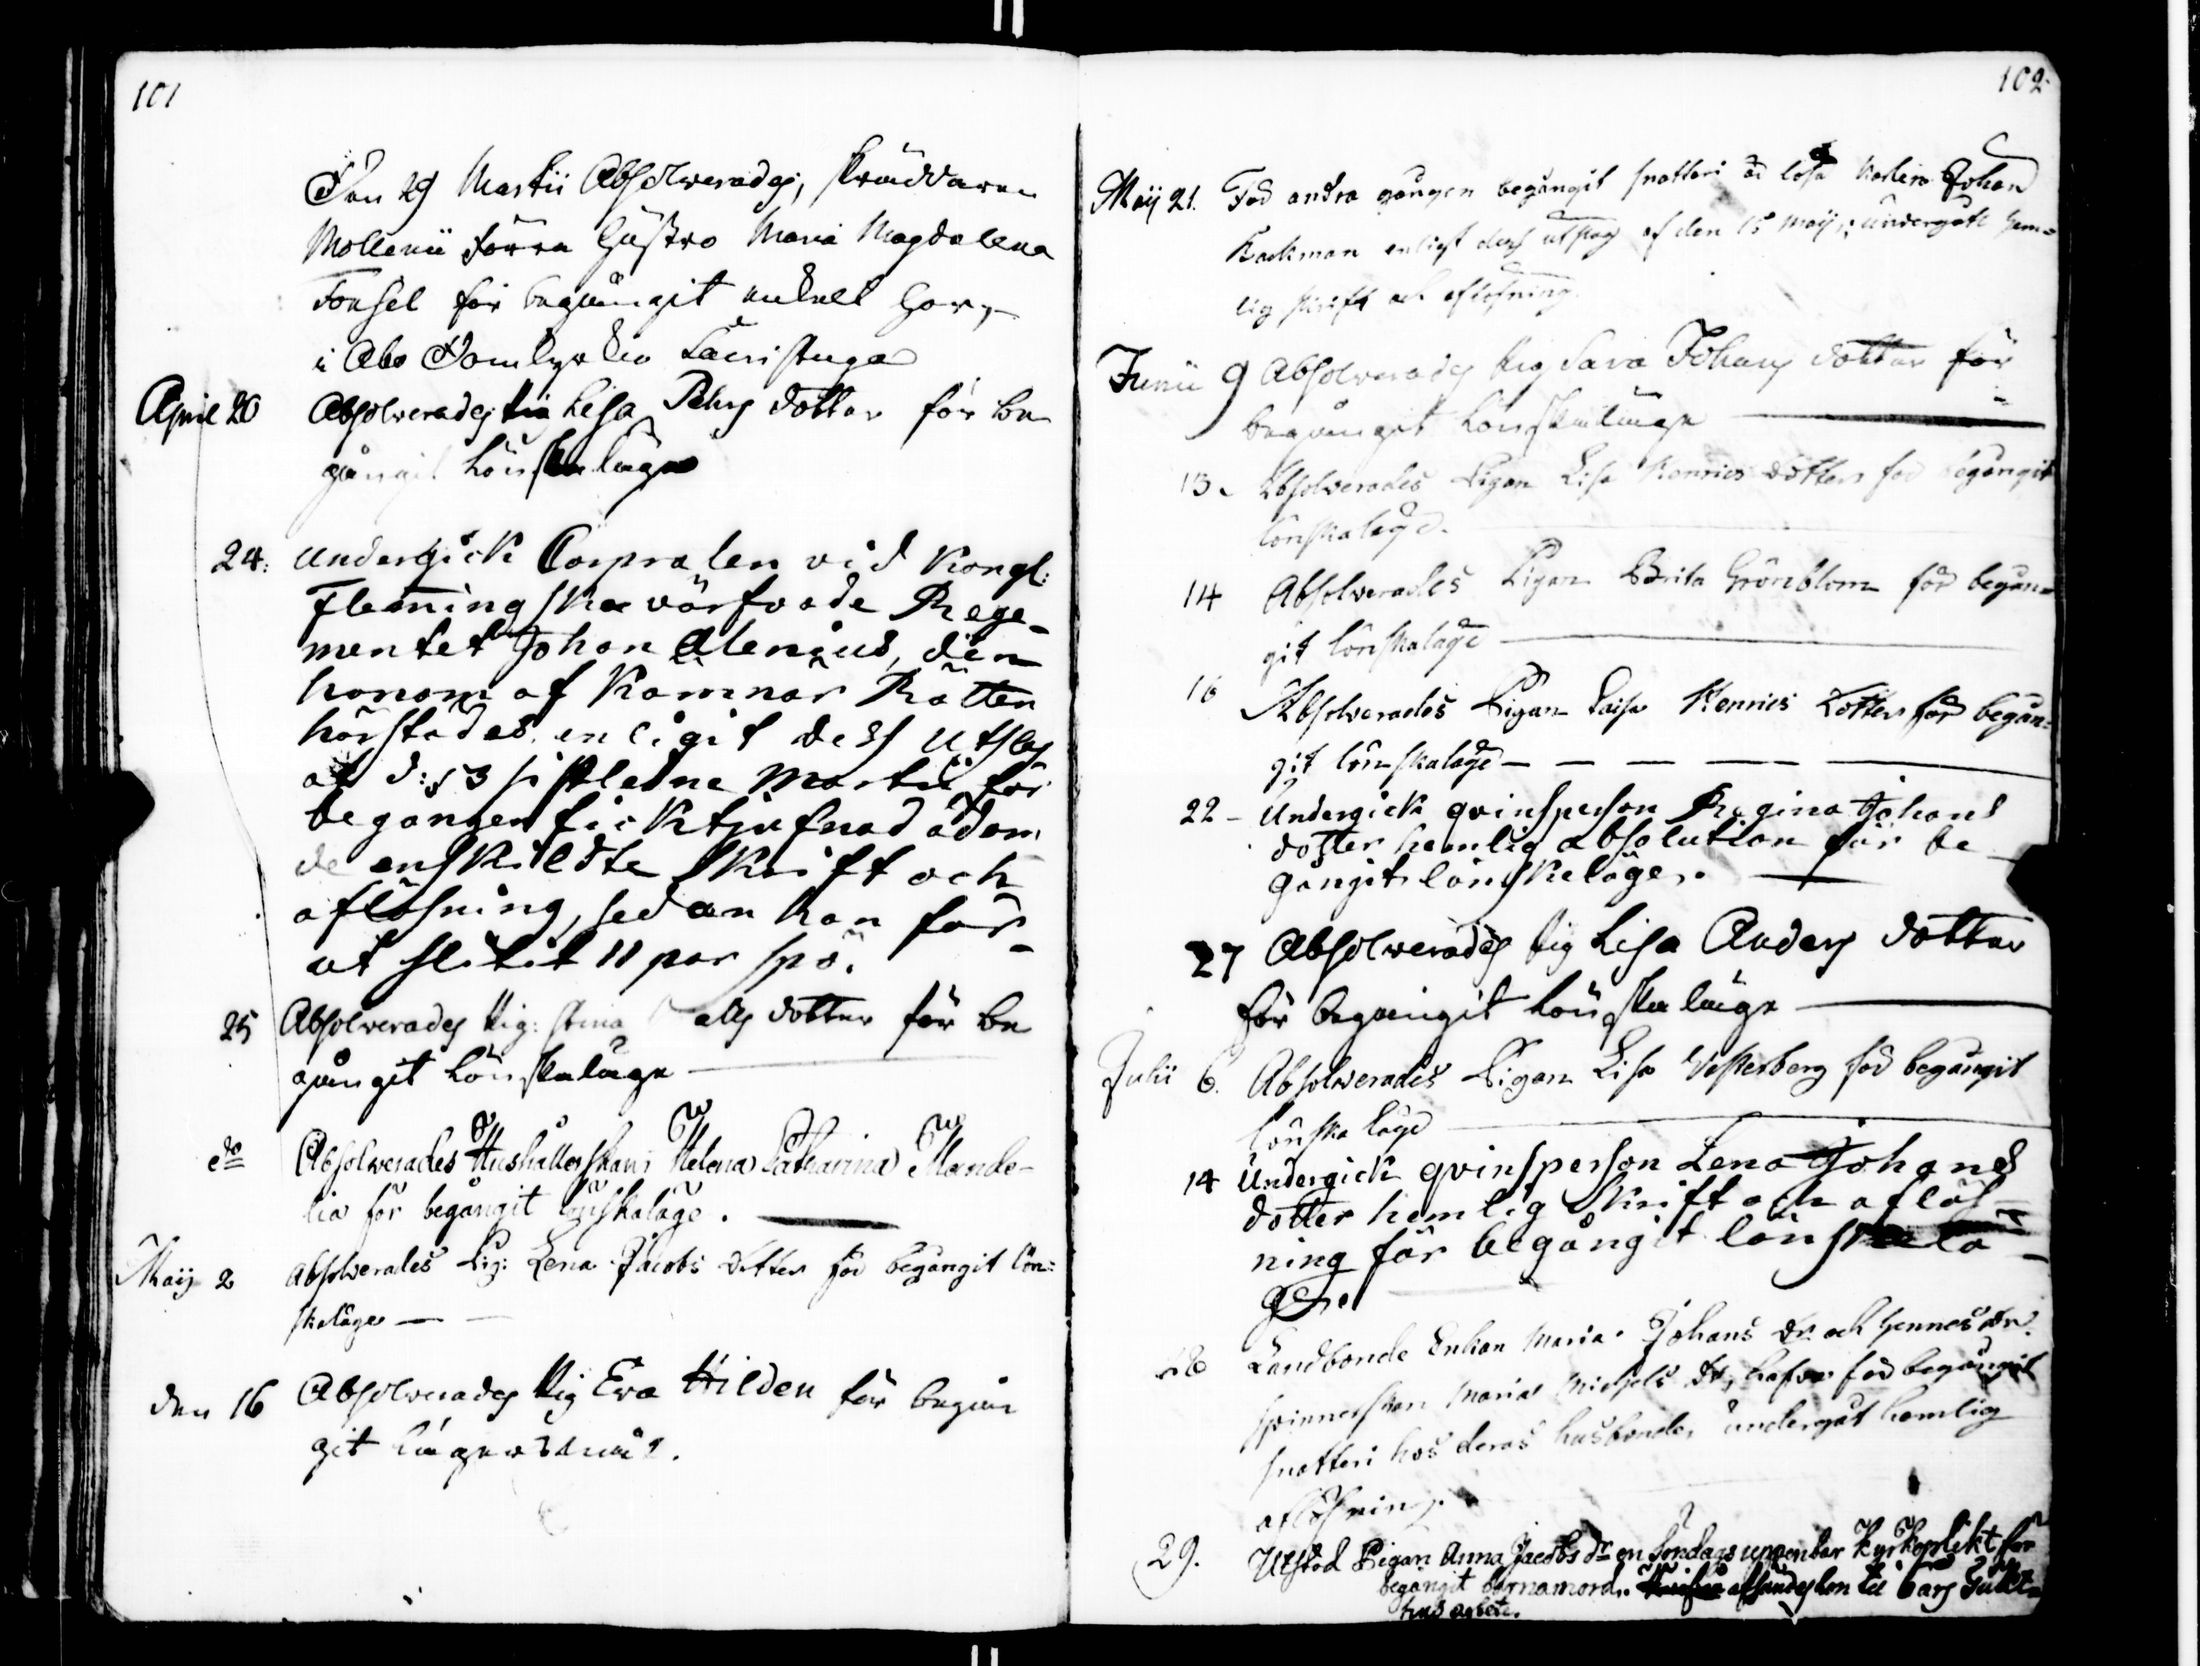 101
Den 29 Martii Absolverades, skräddaren
Mollenii förra hustro Maria Magdalena
för begångit enkelt hor,
i Abo Domkyrkio Sacristuga
April 20 Absolverades Lisa Pehrs dotter för be
gångit Lönskaläge
24: undergick Corpralen vid Kongl:
Flemingska värfvade Rege-
mentet Johan Alenius, den
honom af Kämnärs Rätten
härstädes enligit dess utslag
af d: 13 sistledne Martii för
begången ficktjufnad ådöm
de enskildte skrift och
aflösning, sedan han för-
ut slitit 11 par spö.
25 Absolverades Pig: Stina dotter för be
gångit Lönskaläge
do Absolverades Hushållerskan Helena Catharina Mande-
lia för begångit lönskaläge.
Maij 2 Absolverades Pig: Lena Jacobs dotter för begångit lön=
skaläge
den 16 Absolverades Pig Eva Hilden för begån
git Lägersmål.
102
Maij 21. För andra gången begångit snatteri är Johan
Backman enligt dess utslag af den 15 Maij, undergått hem=
lig skrift och aflösning.
Junii 9 Absolverades Pig Sara Johans dotter för
begångit Lönskaläge
13. Absolverades Pigan Lisa Henrics dotter för begångit
lönskaläge.
14 Absolverades Pigan Brita Grönblom för begån=
git lönskaläge
16 Absolverades Pigan Caisa Henrics dotter för begån=
git lönskaläge
22 - Undergick qvinsperson Regina Johans
dotter hemlig absolution för be
gångit lönskeläge.
27 Absolverades Pig Lisa Anders dotter
för begångit Lönskaläge
Julii 6. Absolverades Pigan Lisa Vesterberg för begångit
lönskaläge
14 Undergick qvinsperson Lena Johans
dotter hemlig skrift och aflös
ning för begångit lönskelä-
ge.
Landbonde Enkan Maria Johans dr och hennes dr
spinnerskan Maria Michels dr, hafva för begångit
snatteri hos deras husbonde, undergåt hemlig
aflösning.
29. Utstod Pigan Anna Jacobs dr en söndags uppenbar kyrkoplikt för
begångit barnamord. afsändes hon til Tuckt-
hus arbete.